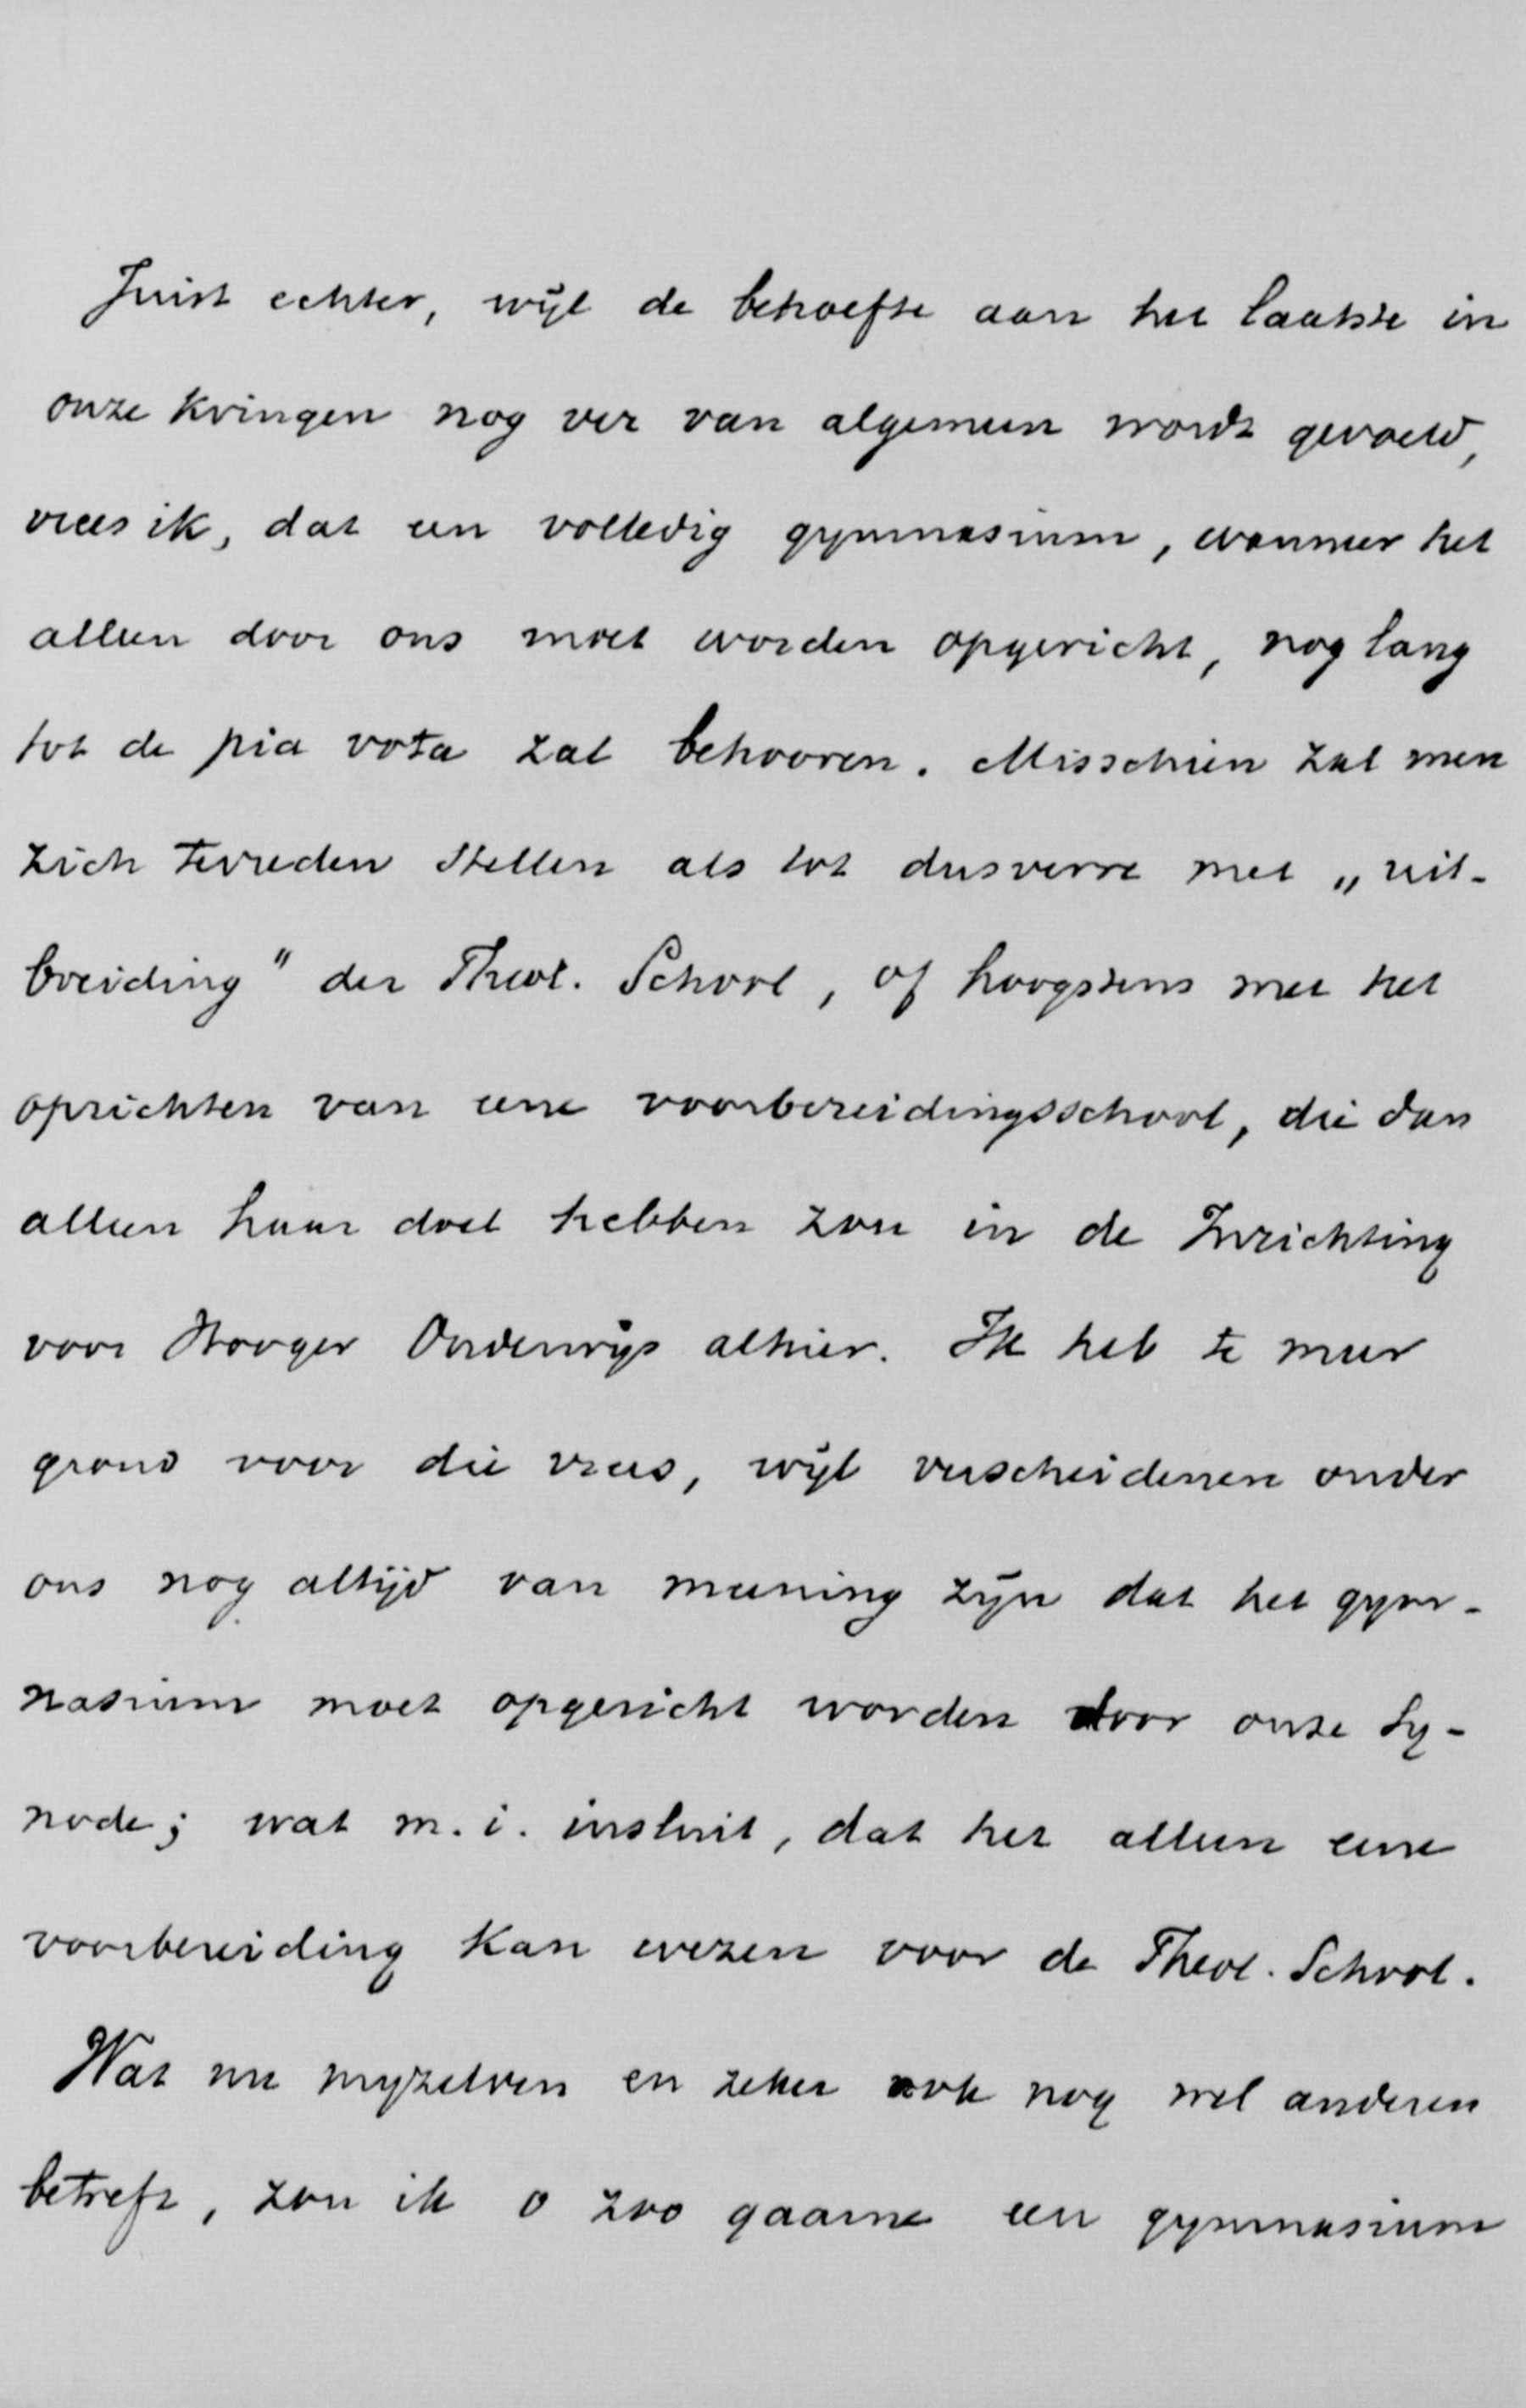 Juist echter, wijl de behoefte aan het laatste in
onze kringen nog ver van algemeen wordt gevoeld,
vrees ik, dat een volledig gymnasium, wanneer het
alleen door ons moet worden opgericht, nog lang
tot de pia vota zal behooren. Misschien zal men
zich tevreden stellen als tot dusverre met „uit-
breiding" der Theol. School, of hoogstens met het
oprichten van eene voorbereidingsschool, die dan
alleen haar doel hebben zou in de Inrichting
voor Hooger Onderwijs alhier. Ik heb te meer
grond voor die vrees, wijl verscheidenen onder
ons nog altijd van meening zijn dat het gym-
nasium moet opgericht worden door onze Sy-
node; wat m. i. insluit, dat het alleen eene
voorbereiding kan wezen voor de Theol. School.
Wat nu mijzelven en zeker ook nog wel anderen
betreft, zou ik o zoo gaarne een gymnasium